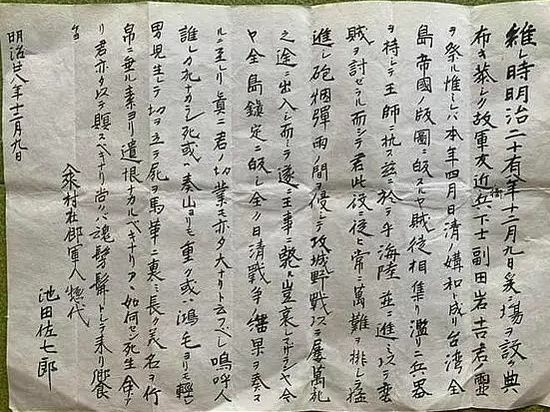 維レ時明治二十有八年十二月九日矣場ヲ設ケ典
布キ恭シク故軍友近衛兵下士副田岩吉君ノ霊
ヲ祭ル惟ミレバ本年四月日清ノ媾和ト成リ台湾全
島帝國ノ版圖ニ皈スルヤ賊徒相集リ濫リニ兵器
ヲ持シテ王師ニ抗ス茲ニ於テ乎海陸並ニ進ミ以テ
賊ヲ討ゼラル而シテ君此役ニ従ヒ常ニ萬難ヲ排シ猛
進シ砲烟彈雨ノ間ヲ侵シテ攻城野戰以テ屢萬死
之途ニ出入シ而シテ遂ニ王事ニ斃ル豈哀シマザランヤ今
ヤ全島鎮定ニ皈シ全ク日清戰争ノ結果ヲ奏ス
ルニ至レリ眞ニ君ノ功業モ亦タ大ナリト云フベシ嗚呼人
誰レカ死ナカランヤ死或ハ泰山ヨリモ重ク或ハ鴻毛ヨリモ輕シ
男児生テ功ヲ立テ死ヲ馬革ニ裹ミ長ク美名ヲ竹
帛ニ垂ル素ヨリ遺恨ナカルベキナリアヽ如何セン死生余ア
リ君亦タ以テ瞑スベキナリ尚クバ魂髣髴トシテ来リ饗
ケヨ
村在郷軍人惣代
池田佐七郎
明治廿八年十二月九日